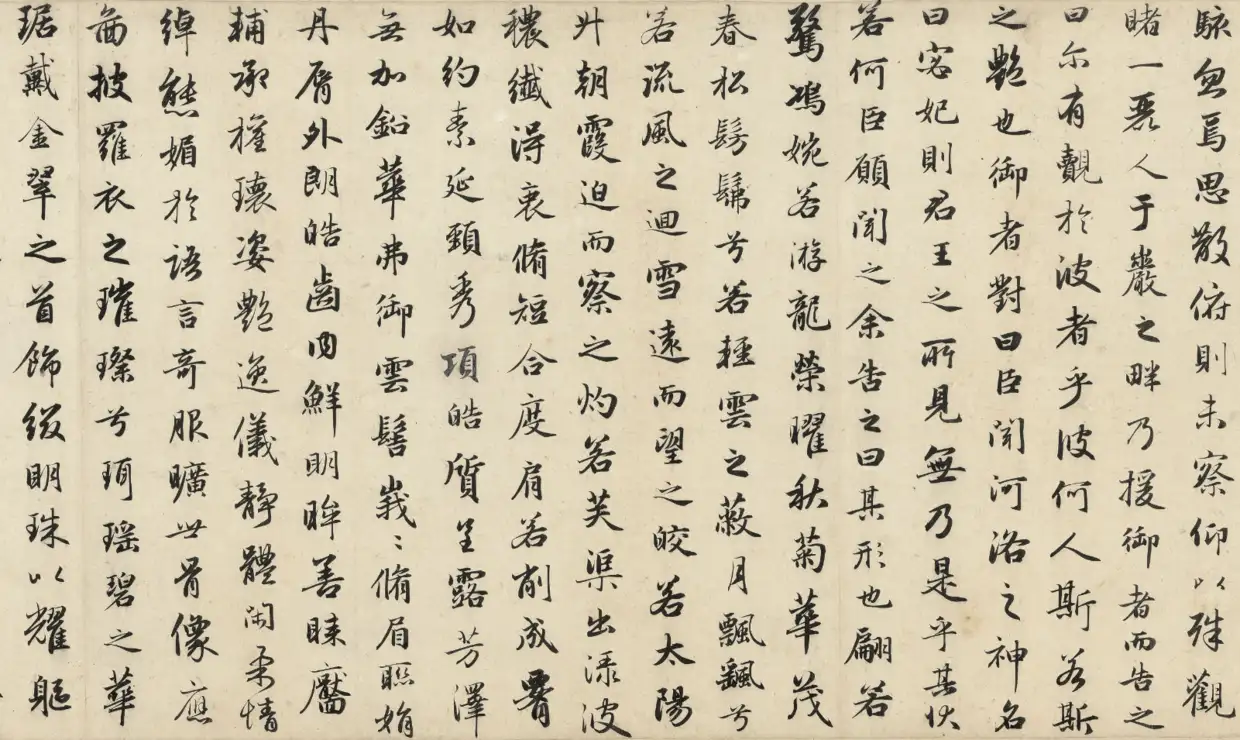 駭忽焉思散俯則未察仰以殊觀
睹一麗人于巖之畔乃援御者而告之
曰尒有覿於彼者乎彼何人斯若斯
之艷也御者對曰臣聞河洛之神名
曰宓妃則君王之所見無乃是乎其狀
若何臣願聞之余告之曰其形也翩若
驚鴻婉若游龍榮曜秋菊華茂
春松髣髴兮若輕雲之蔽月飄飖兮
若流風之迴雪遠而望之皎若太陽
升朝霞迫而察之灼若芙渠出淥波
穠纖得衷脩短合度肩若削成腰
如約素延頸秀項皓質呈露芳澤
無加鉛華弗御雲髻峩〻脩眉聯娟
丹脣外朗皓齒内鮮明眸善睞靨
輔承權瓌姿艷逸儀靜體閑柔情
綽態媚於語言奇服曠世骨像應
啚披羅衣之璀璨兮珥瑤碧之華
琚戴金翠之首飾綴明珠以耀軀